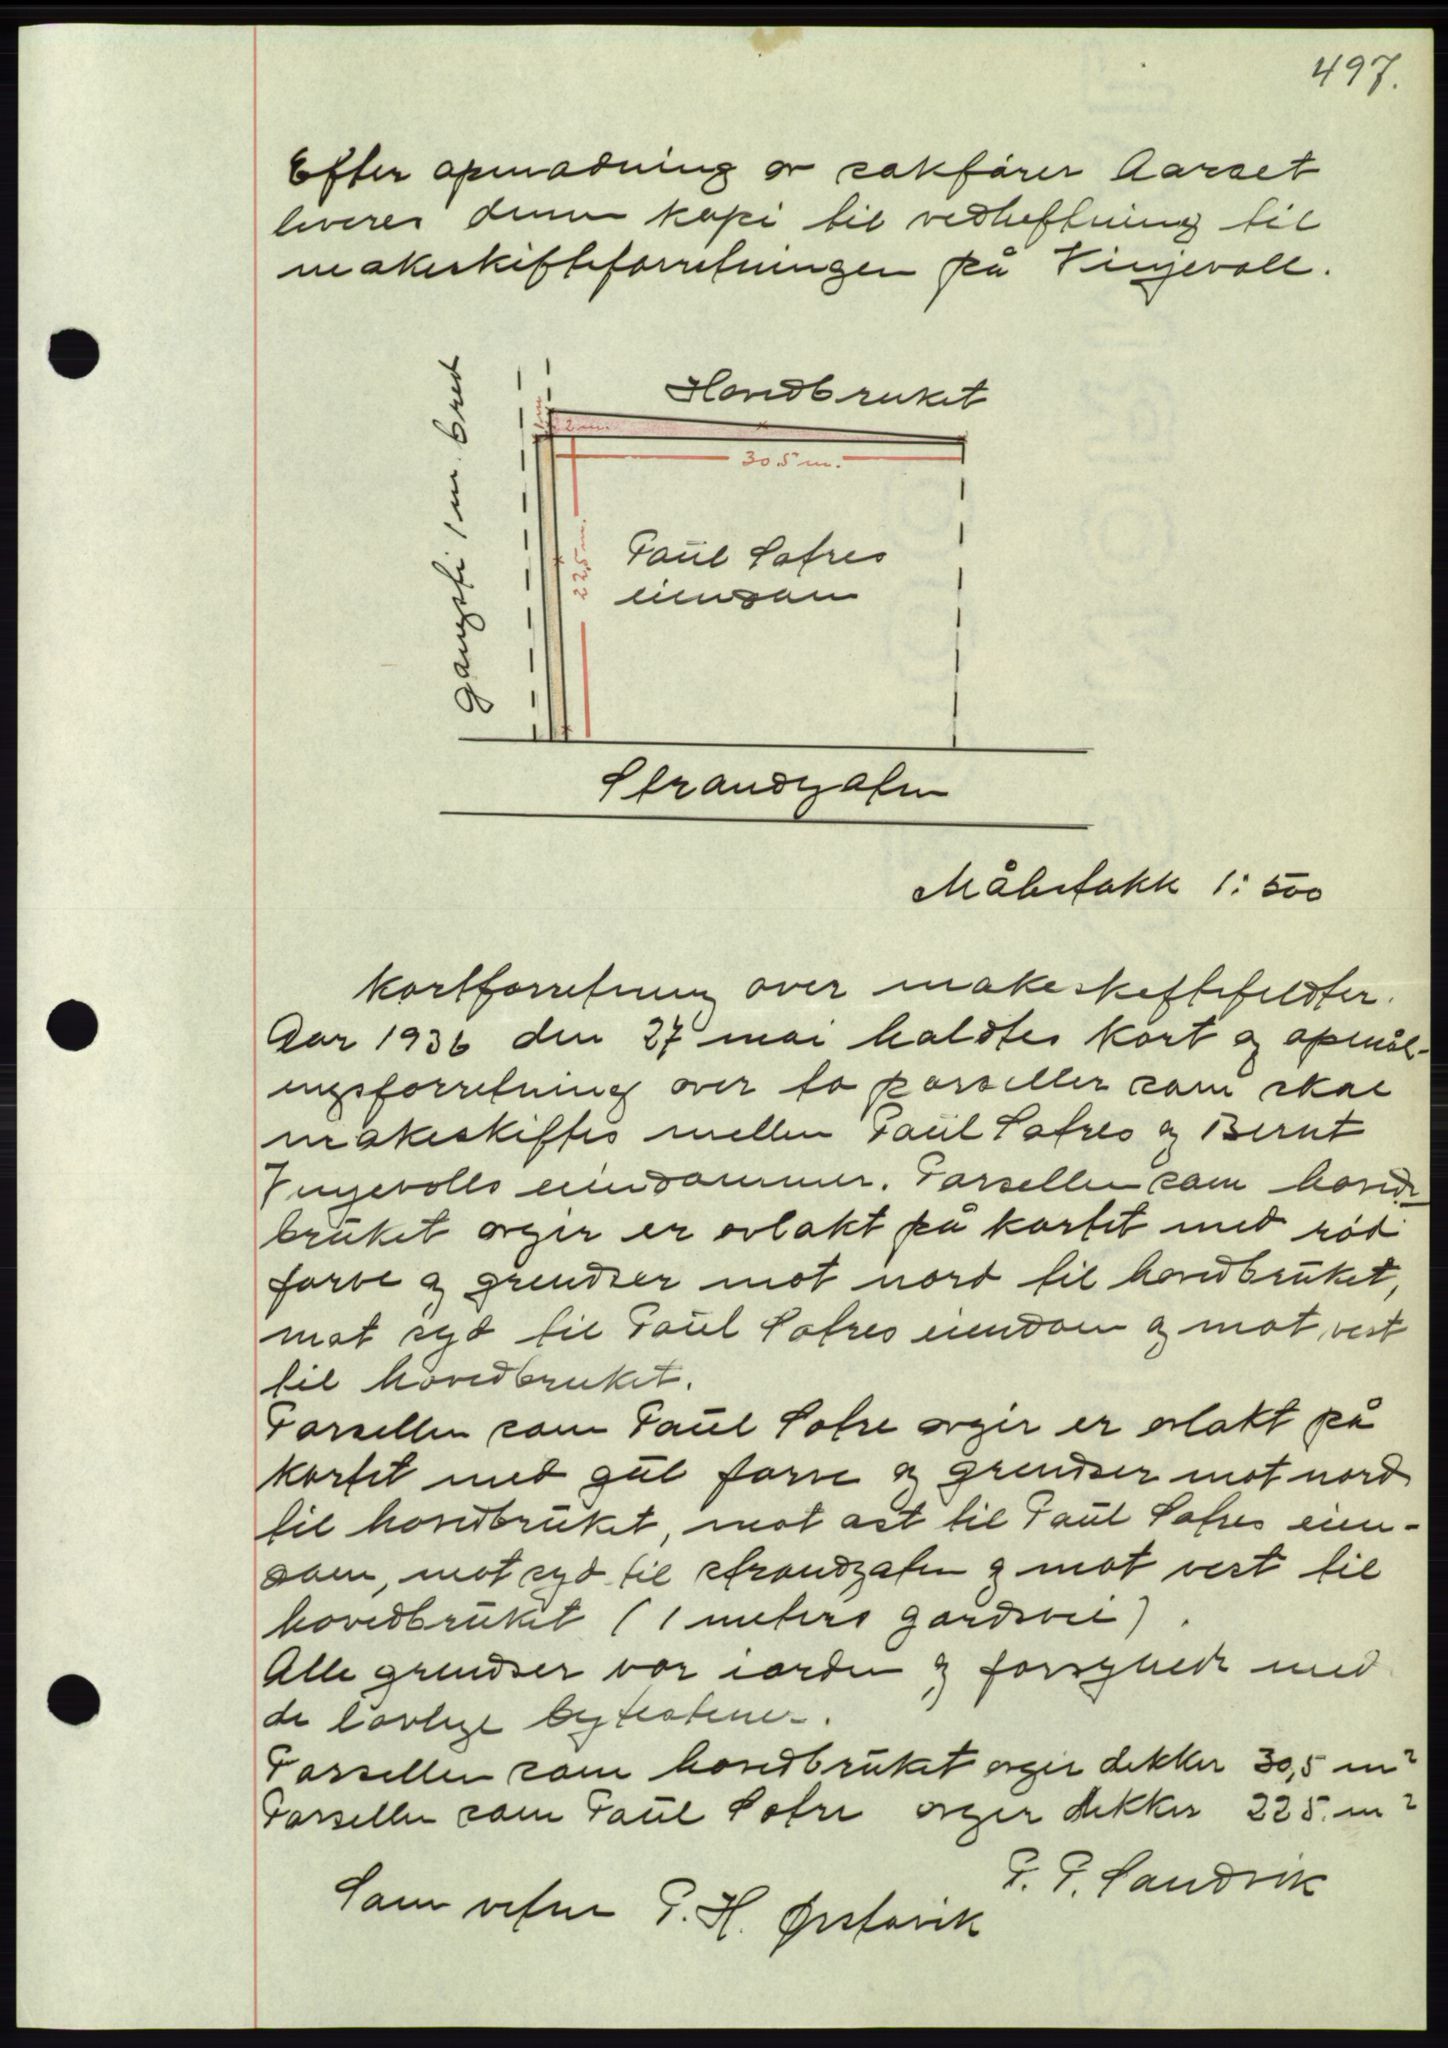 497.
Efter opmodning av sakfører Aarset
leveres denne kopi til vedheftning til
makeskifteforretningen på Vinjevoll.
Hovedbruket
gangsti 1 m. bred
1 m.
2 m.
30.5 m.
22,5 m.
Paul Sætres
eiendom
Strandgaten
Målestokk 1:500
Kortforretning over makeskiftefeldter.
Aar 1936 den 27 mai holdtes kort og opmål-
ingsforretning over to parseller som skal
makeskiftes mellem Paul Sætres og Bernt
Vinjevolls eiendommer. Parsellen som hoved-
bruket avgir er avlakt på kartet med rød
farve og grendser mot nord til hovedbruket,
mot syd til Paul Sætres eiendom og mot vest
til hovedbruket.
Parsellen som Paul Sætre avgir er avlakt på
kartet med gul farve og grendser mot nord
til hovedbruket, mot øst til Paul Sætres eien-
dom, mot syd til strandgaten og mot vest til
hovedbruket (1 meters gårdsvei).
Alle grendser var i orden og forsynede med
de lovlige bytestener.
Parsellen som hovedbruket avgir dekker 30,5 m²
Parsellen som Paul Sætre avgir dekker 22 5. m²
P. P. Sandvik
Som vitne P. H. Ørstavik